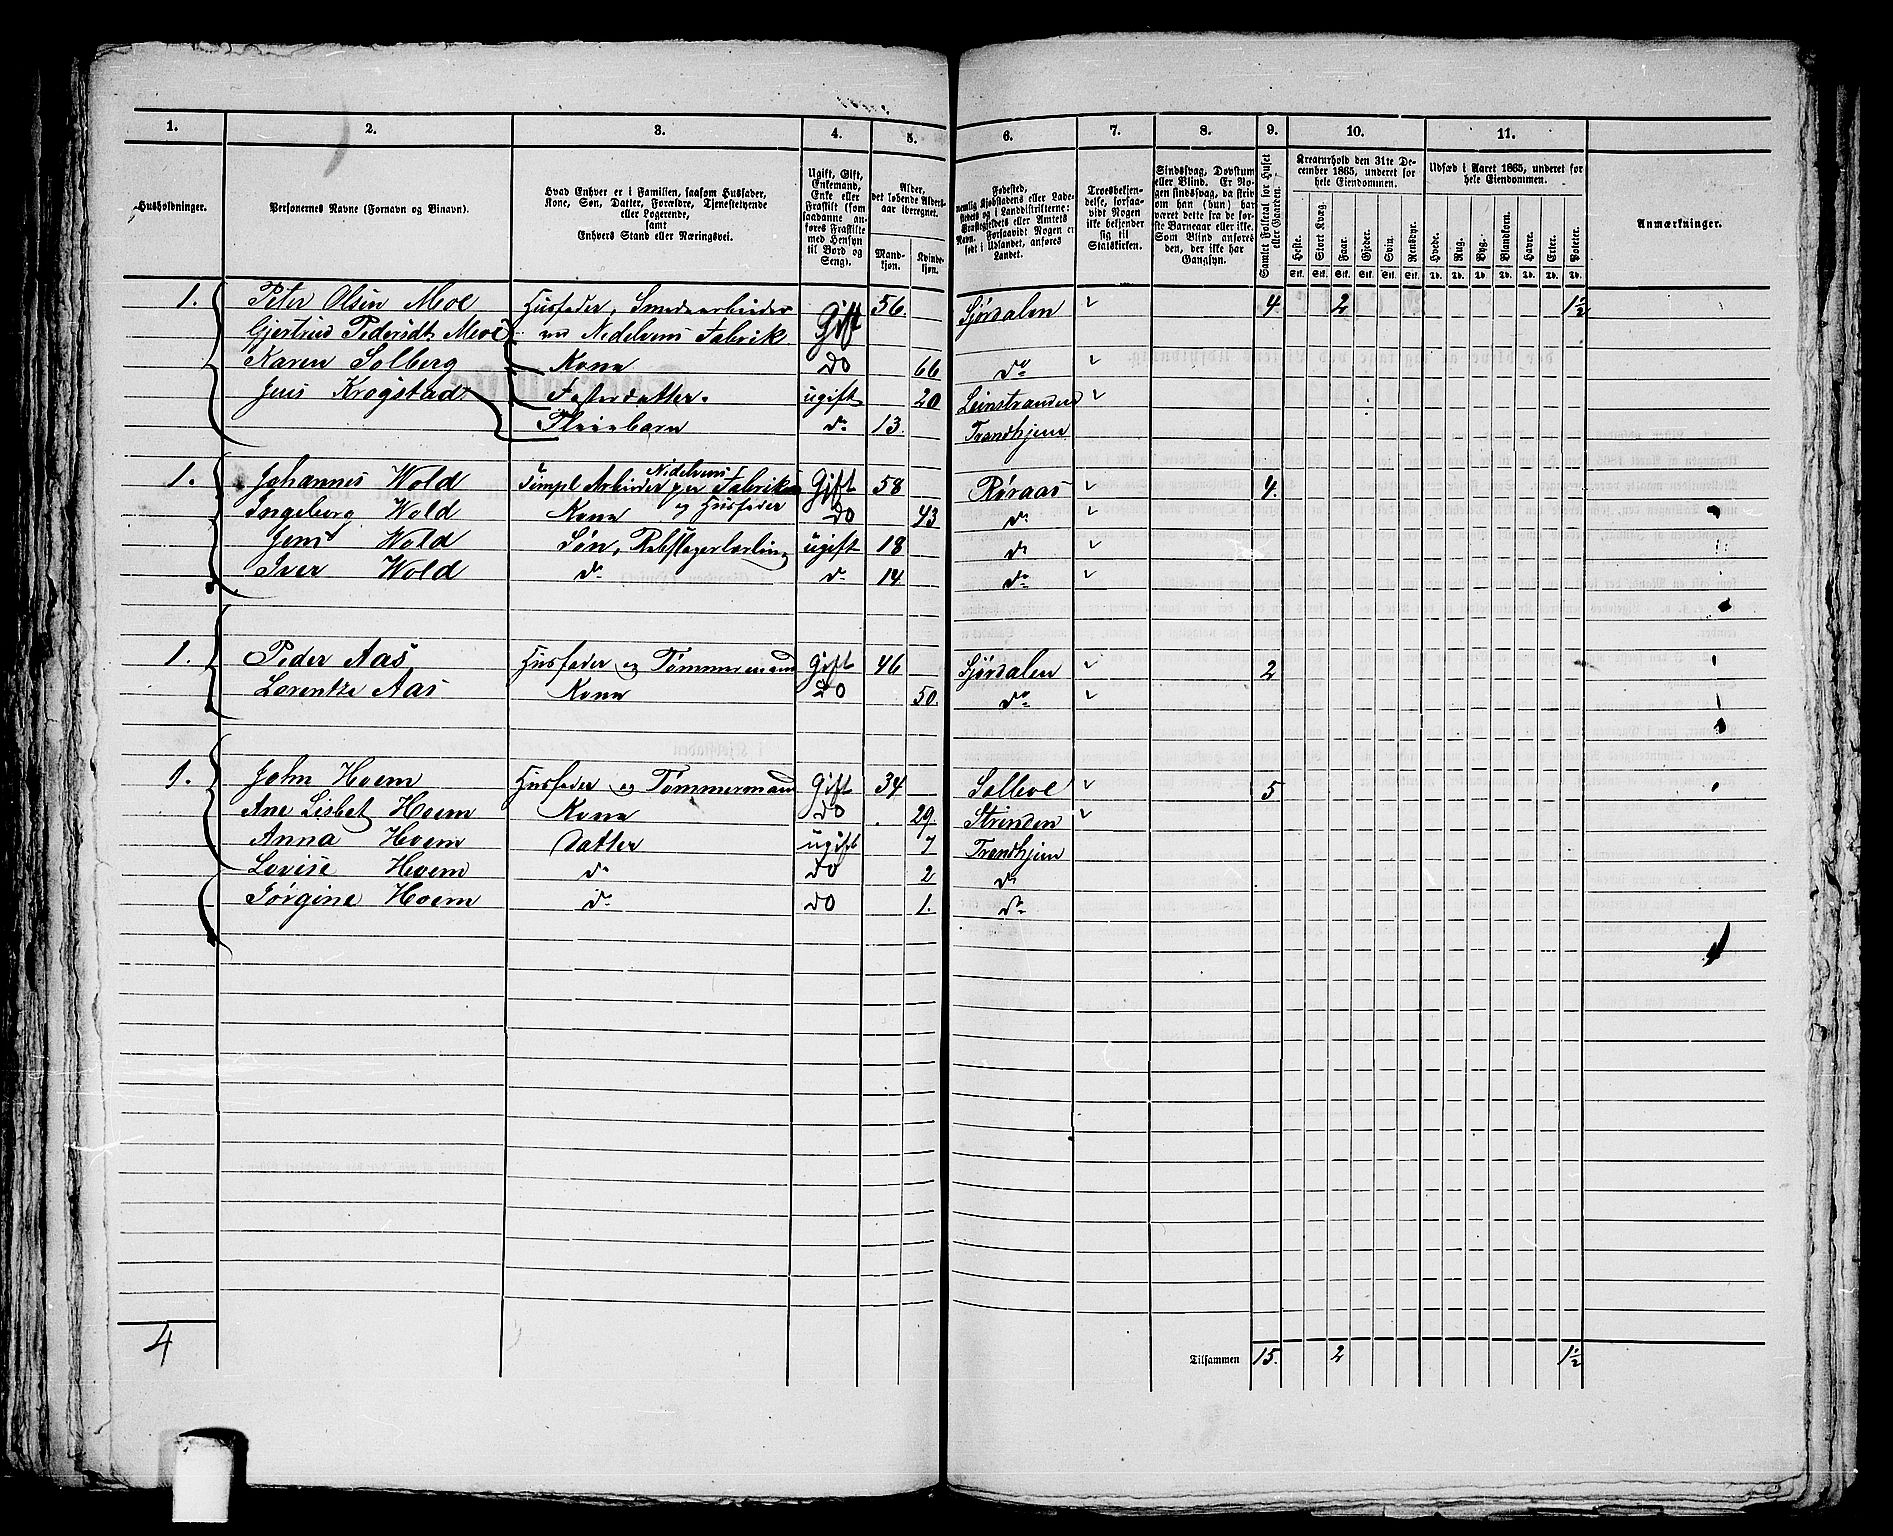 1. 2. 3. 4. 5. 6. 7. 8. 9. 10. 11.
Husholdninger.
Personernes Navne (Fornavn og Binavn).
Hvad Enhver er i Familien, saasom Husfader,
Kone, Søn, Datter, Forældre, Tjenestetyende
eller Logerende,
samt
Enhvers Stand eller Næringsvei.
Ugift, Gift,
Enkemand,
Enke eller
Fraskilt (som
saadanne an-
føres Fraskilte
med Hensyn
til Bord og
Seng).
Alder,
det løbende Alders-
aar iberegnet.
Mand-
kjøn.
Kvinde-
kjøn.
Fødested,
nemlig Kjøbstadens eller Lade-
stedets og i Landdistrikterne:
Præstegjeldets eller Amtets
Navn. Forsaavidt Nogen er
født i Udlandet, anføres
Landet.
Troesbekjen-
delse, forsaa-
vidt Nogen
ikke bekjender
sig til
Statskirken.
Sindssvag, Døvstum
eller Blind. Er No-
gen sindssvag, da skriv
om han (hun) har
været dette fra de før-
ste Barneaar eller ikke.
Som Blind anføres
den, der ikke har
Gangsyn.
Samlet Folketal for Huset
eller Gaarden.
Kreaturhold den 31te De-
cember 1865, underet for
hele Eiendommen.
Heste. Stort Kvæg. Faar. Gjeder. Svin. Rensdyr.
Stk. Stk. Stk. Stk. Stk. Stk.
Udsæd i Aaret 1865, underet for
hele Eiendommen.
Hvede. Rug. Byg. Blandkorn. Havre. Erter. Poteter.
Td. Td. Td. Td. Td. Td. Td.
Anmærkninger.
1. Peter Olsen Moe Husfader, Smedearbeider Gift 56. Sjørdalen 4 2 1½
Gjertrud Pedersdt. Moe ved Nidelvens Fabrik Gift
Karen Solberg Kone Do 66 do
Jens Krogstad Fosterdatter. ugift 20 Leinstranden
Pleiebarn do 13. Trondhjem
1. Johannes Wold Simpel Arbeider per Nidelvens Fabrik Gift 58 Røraas 4.
Ingeborg Wold Kone og Husfader Do 43 do
Jens Wold Søn, Rebslagerlærling ugift 18 do
Iver Wold do do 14. do
1. Peder Aas Husfader og Tømmermand Gift 46 Sjørdalen 2
Lorentze Aas Kone Do 50. do
1. John Hoem Husfader og Tømmermand Gift 34 5
Ane Lisbet Hoem Kone Do 29. Strinden
Anna Hoem Datter ugift 7 Trondhjem
Lovise Hoem do Do 2 do
Jørgine Hoem do Do 1. do
4 Tilsammen 15. 2 1½